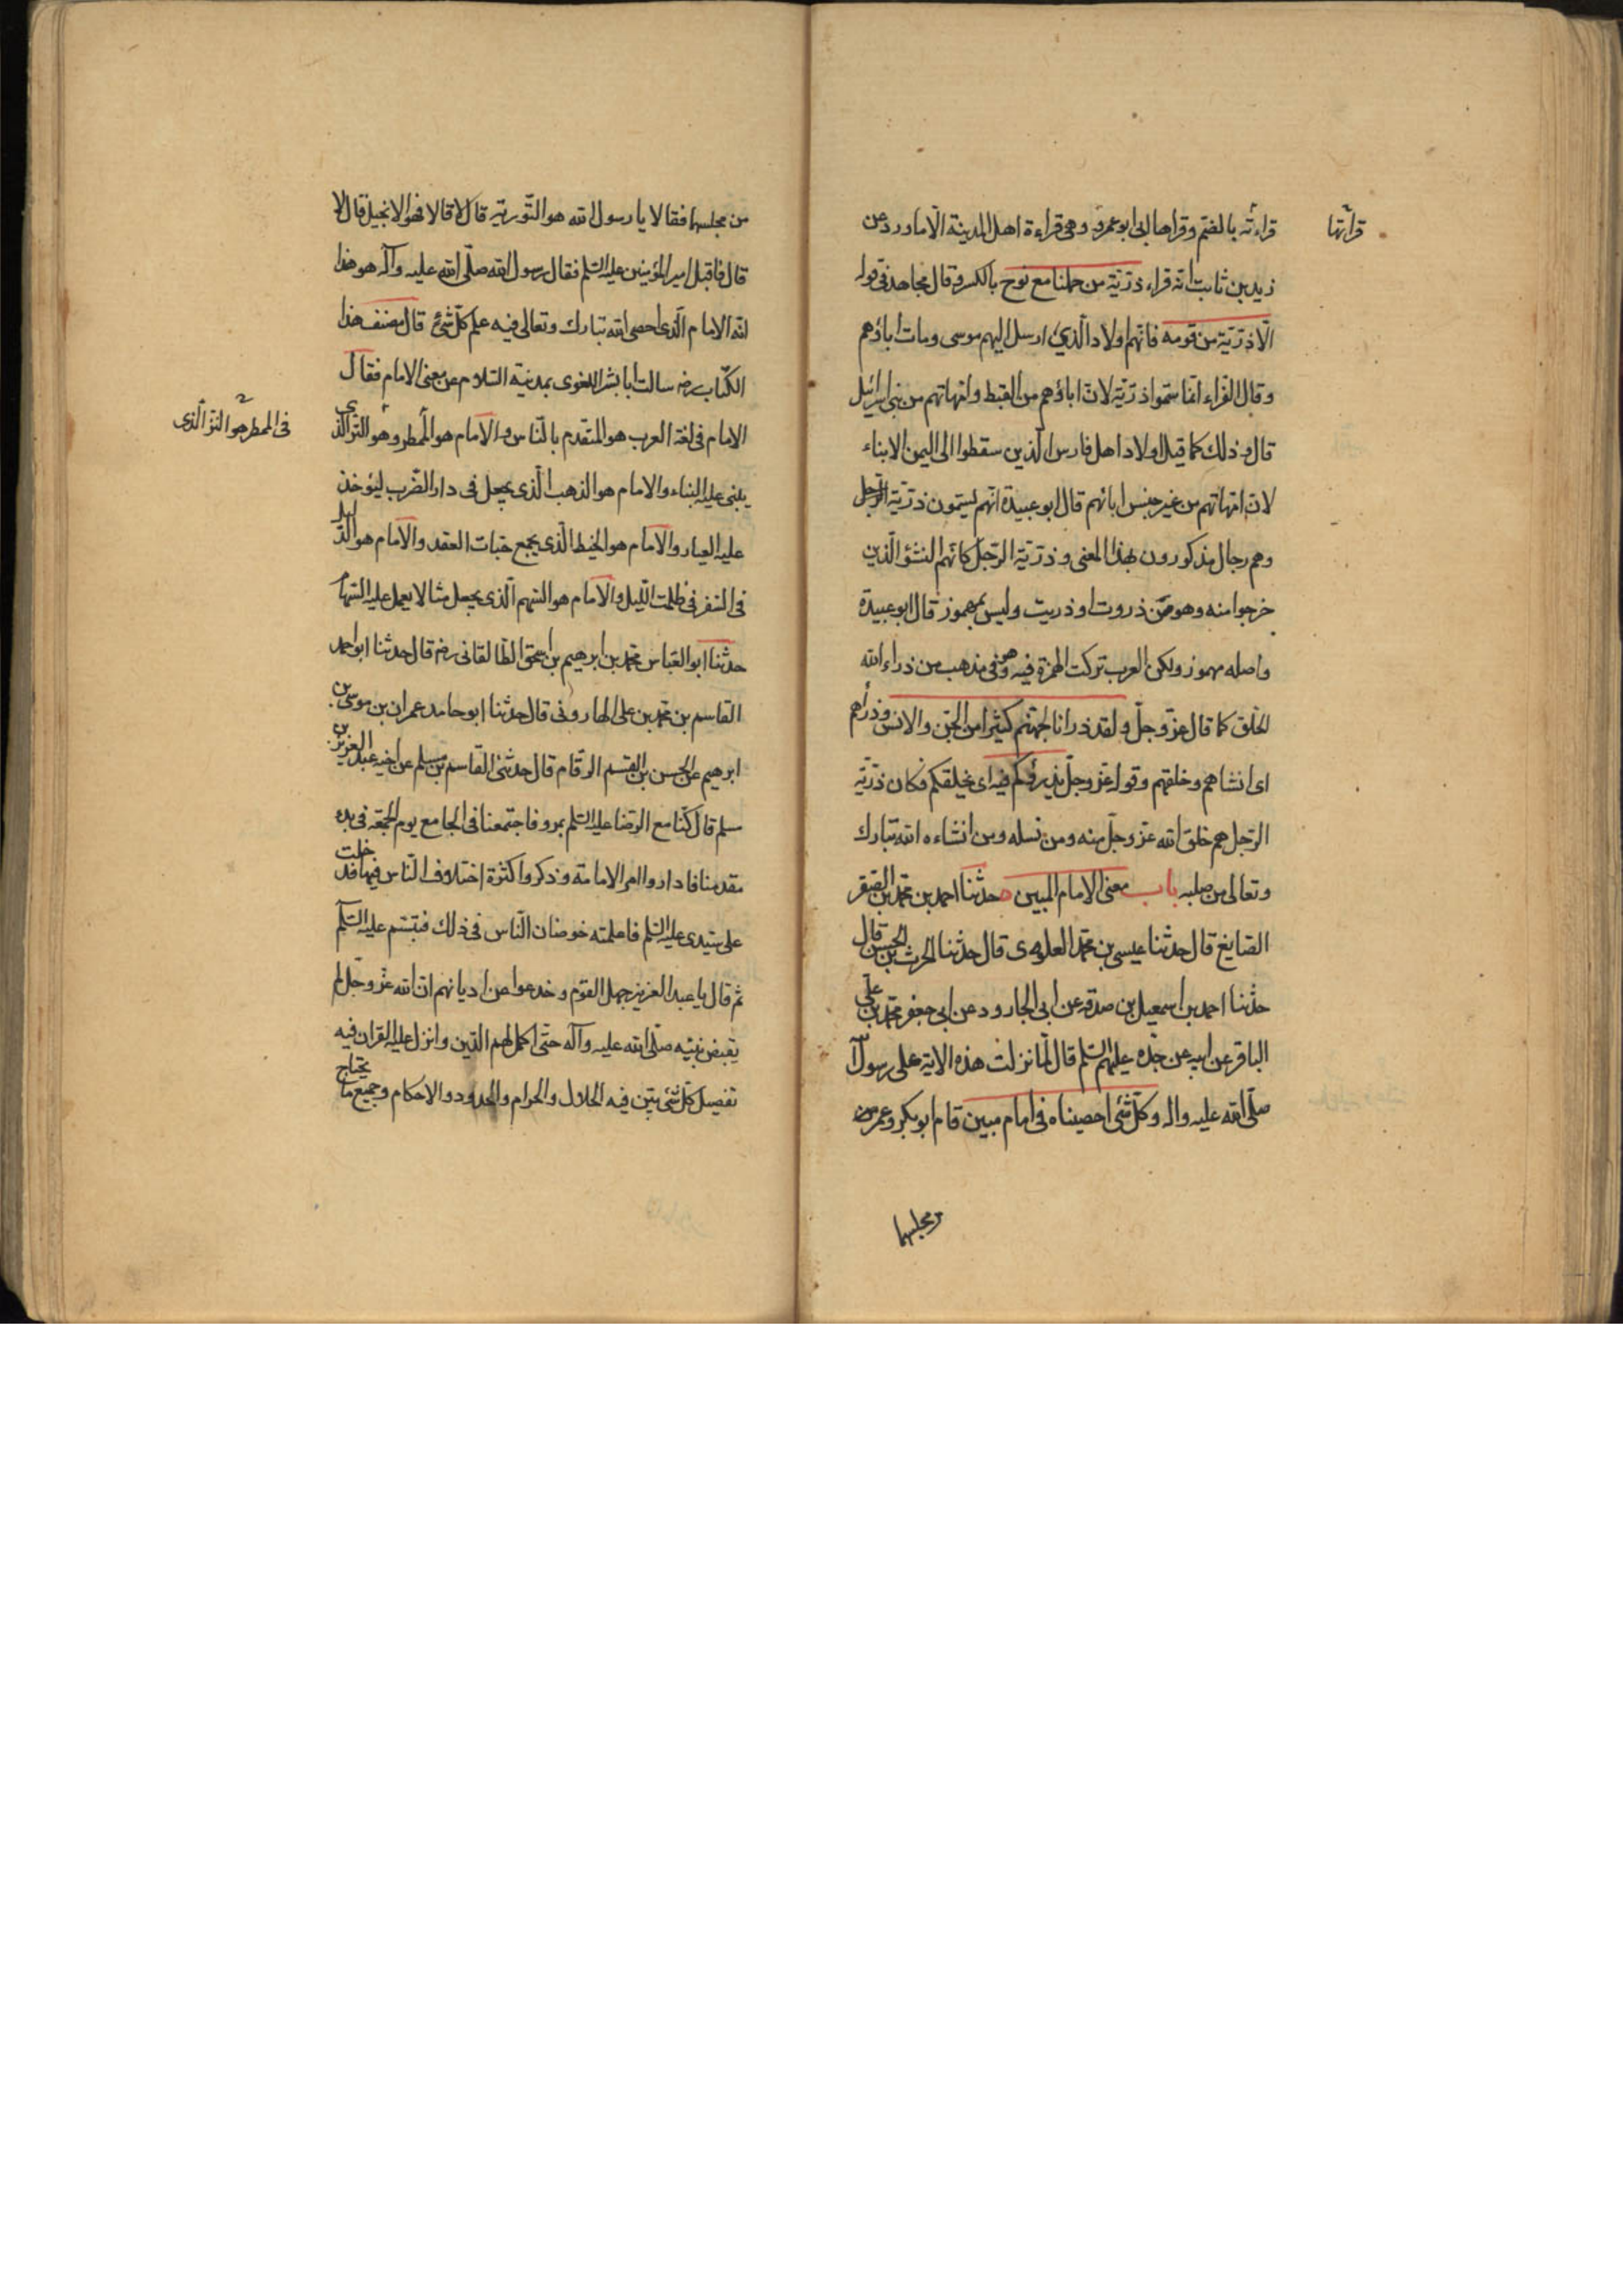 قراءته بالضم وقراها ابى ابو عمرو وهى قراءة اهل المدينة الّا ما ورد عن
قرائتها
زيد بن ثابت انّه قراء ذرّيّة من حملنا مع نوح بالكسر وقال مجاهد فى قوله
الّا ذرّيّة من قومه فانّهم اولاد الّذين ارسل اليهم موسى ومات اباؤهم
وقال الفرّاء انّما سمّوا ذرّيّة لانّ اباؤهم من القبط وامّهاتهم من بنى اسرائيل
قال وذلك كما قيل لاولاد اهل فارس الّذين سقطوا الى اليمن الابناء
لانّ امّهاتهم من غير جنس ابائهم قال ابو عبيدة انّهم يسمّون ذرّيّة الرّجل
وهم رجال مذكورون بهذا المعنى وذرّيّة الرّجل كانّهم النشؤ الّذين
خرجوا منه وهو من ذروت او ذريت وليس بمهموز قال ابو عبيدة
واصله مهموز ولكن العرب تركت الهمزة فيه وهو فى مذهب من ذراء الله
الخلق كما قال عزّ وجلّ ولقد ذرانا لجهنّم كثيرا من الجنّ والانس وذرأهم
اى انشاهم وخلقهم وقوله عزّ وجلّ يذرؤكم فيه اى يخلقكم فكان ذرّيّة
الرّجل هم خلق الله عزّ وجلّ منه ومن نسله ومن انشاءه الله تبارك
وتعالى من صلبه باب معنى الامام المبين حدّثنا احمد بن محمّد بن الصقر
الصّايغ قال حدّثنا عيسى بن محمّد العلوى قال حدّثنا الحرث بن الحسن قال
حدّثنا احمد بن اسمعيل بن صدقة عن ابى الجارود عن ابى جعفر محمّد بن على
الباقر عن ابيه عن جدّه عليهم السّلم قال لمّا نزلت هذه الاية على رسول الله
صلّى الله عليه واله وكلّ شئ احصيناه فى امام مبين قام ابو بكر وعمر من
من مجلسهما
من مجلسهما فقالا يا رسول الله هو التّورية قال لا قالا فهو الانجيل قال لا
قال فاقبل امير المؤمنين عليه السّلم فقال رسول الله صلّى الله عليه وآله هو هذا
انّه الامام الّذى احصى الله تبارك وتعالى فيه علم كلّ شئ قال مصنف هذا
الكتاب رضه سالت ابا بشر اللغوى بمدينة السّلام عن معنى الامام فقال
الامام فى لغة العرب هو المتقدّم بالنّاس والامام هو المطمر وهو التر الذى
فى المطمر هو التر الّذى
يبنى عليه البناء والامام هو الذهب الّذى يجعل فى دار الضّرب ليؤخذ
عليه العيار والامام هو الخيط الّذى يجمع حبّات العقد والامام هو الدّليل
فى السّفر فى ظلمت اللّيل والامام هو السّهم الّذى يجعل مثالا يعمل عليه السّهام
حدّثنا ابو العبّاس محمّد بن ابرهيم بن اسحق الطّالقانى رضه قال حدّثنا ابو احمد
القاسم بن محمّد بن على الهارونى قال حدّثنا ابو حامد عمران بن موسى بن
ابرهيم عن الحسن بن القسم الرّقام قال حدّثنى القاسم بن مسلم عن اخيه عبد العزيز بن
مسلم قال كنّا مع الرّضا عليه السّلم بمرو فاجتمعنا فى الجامع يوم الجمعة فى بدء
مقدمنا فاداروا امر الامامة وذكروا كثرة اختلاف النّاس فيها فدخلت
على سيّدى عليه السّلم فاعلمته خوضان النّاس فى ذلك فتبسّم عليه السّلم
ثم قال يا عبد العزيز جهل القوم وخدعوا عن اديانهم انّ الله عزّ وجلّ لم
يقبض نبيّه صلّى الله عليه وآله حتّى اكمل لهم الدّين وانزل عليه القران فيه
تفصيل كلّ شئ بيّن فيه الحلال والحرام والحدود والاحكام وجميع ما يحتاج